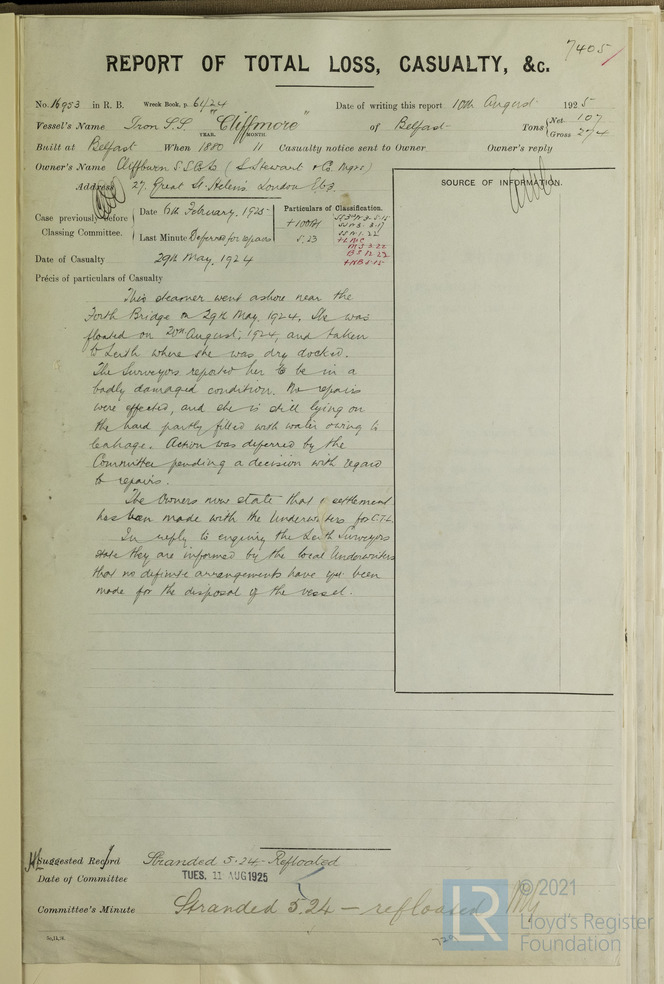 7405
REPORT OF TOTAL LOSS, CASUALTY, &c.
No. 16953 in R. B. Wreck Book, p. 61/24 Date of writing this report 10th August 1925
Vessel's Name Iron S.S. "Cliffmore" of Belfast Tons Net 107 Gross 274
YEAR. MONTH.
Built at Belfast When 1880 11 Casualty notice sent to Owner Owner's reply
Owner's Name Cliffburn S.S. Co Ld (S. Stewart & Co. Mgrs)
Address 27, Great St. Helens, London E.C.3.
SOURCE OF INFORMATION.
Case previously before Classing Committee.
Date 6th February, 1925
Last Minute Deferred for repairs
Particulars of Classification.
+100A1
5.23
Date of Casualty 29th May, 1924
Précis of particulars of Casualty
This steamer went ashore near the
Forth Bridge on 29th May 1924. She was
floated on 20th August, 1924, and taken
to Leith where she was dry docked.
The Surveyors reported her to be in a
badly damaged condition. No repairs
were effected, and she is still lying on
the hard partly filled with water owing to
leakage. Action was deferred by the
Committee pending a decision with regard
to repairs.
The Owners now state that a settlement
has been made with the Underwriters for C.T.L.
In reply to enquiry the Leith Surveyors
state they are informed by the local Underwriters
that no definite arrangements have yet been
made for the disposal of the vessel.
Suggested Record Stranded 5.24 - Refloated
Date of Committee TUES. 11 AUG 1925
Committee's Minute Stranded 5.24 - refloated
LR © 2021
Lloyd's Register
Foundation